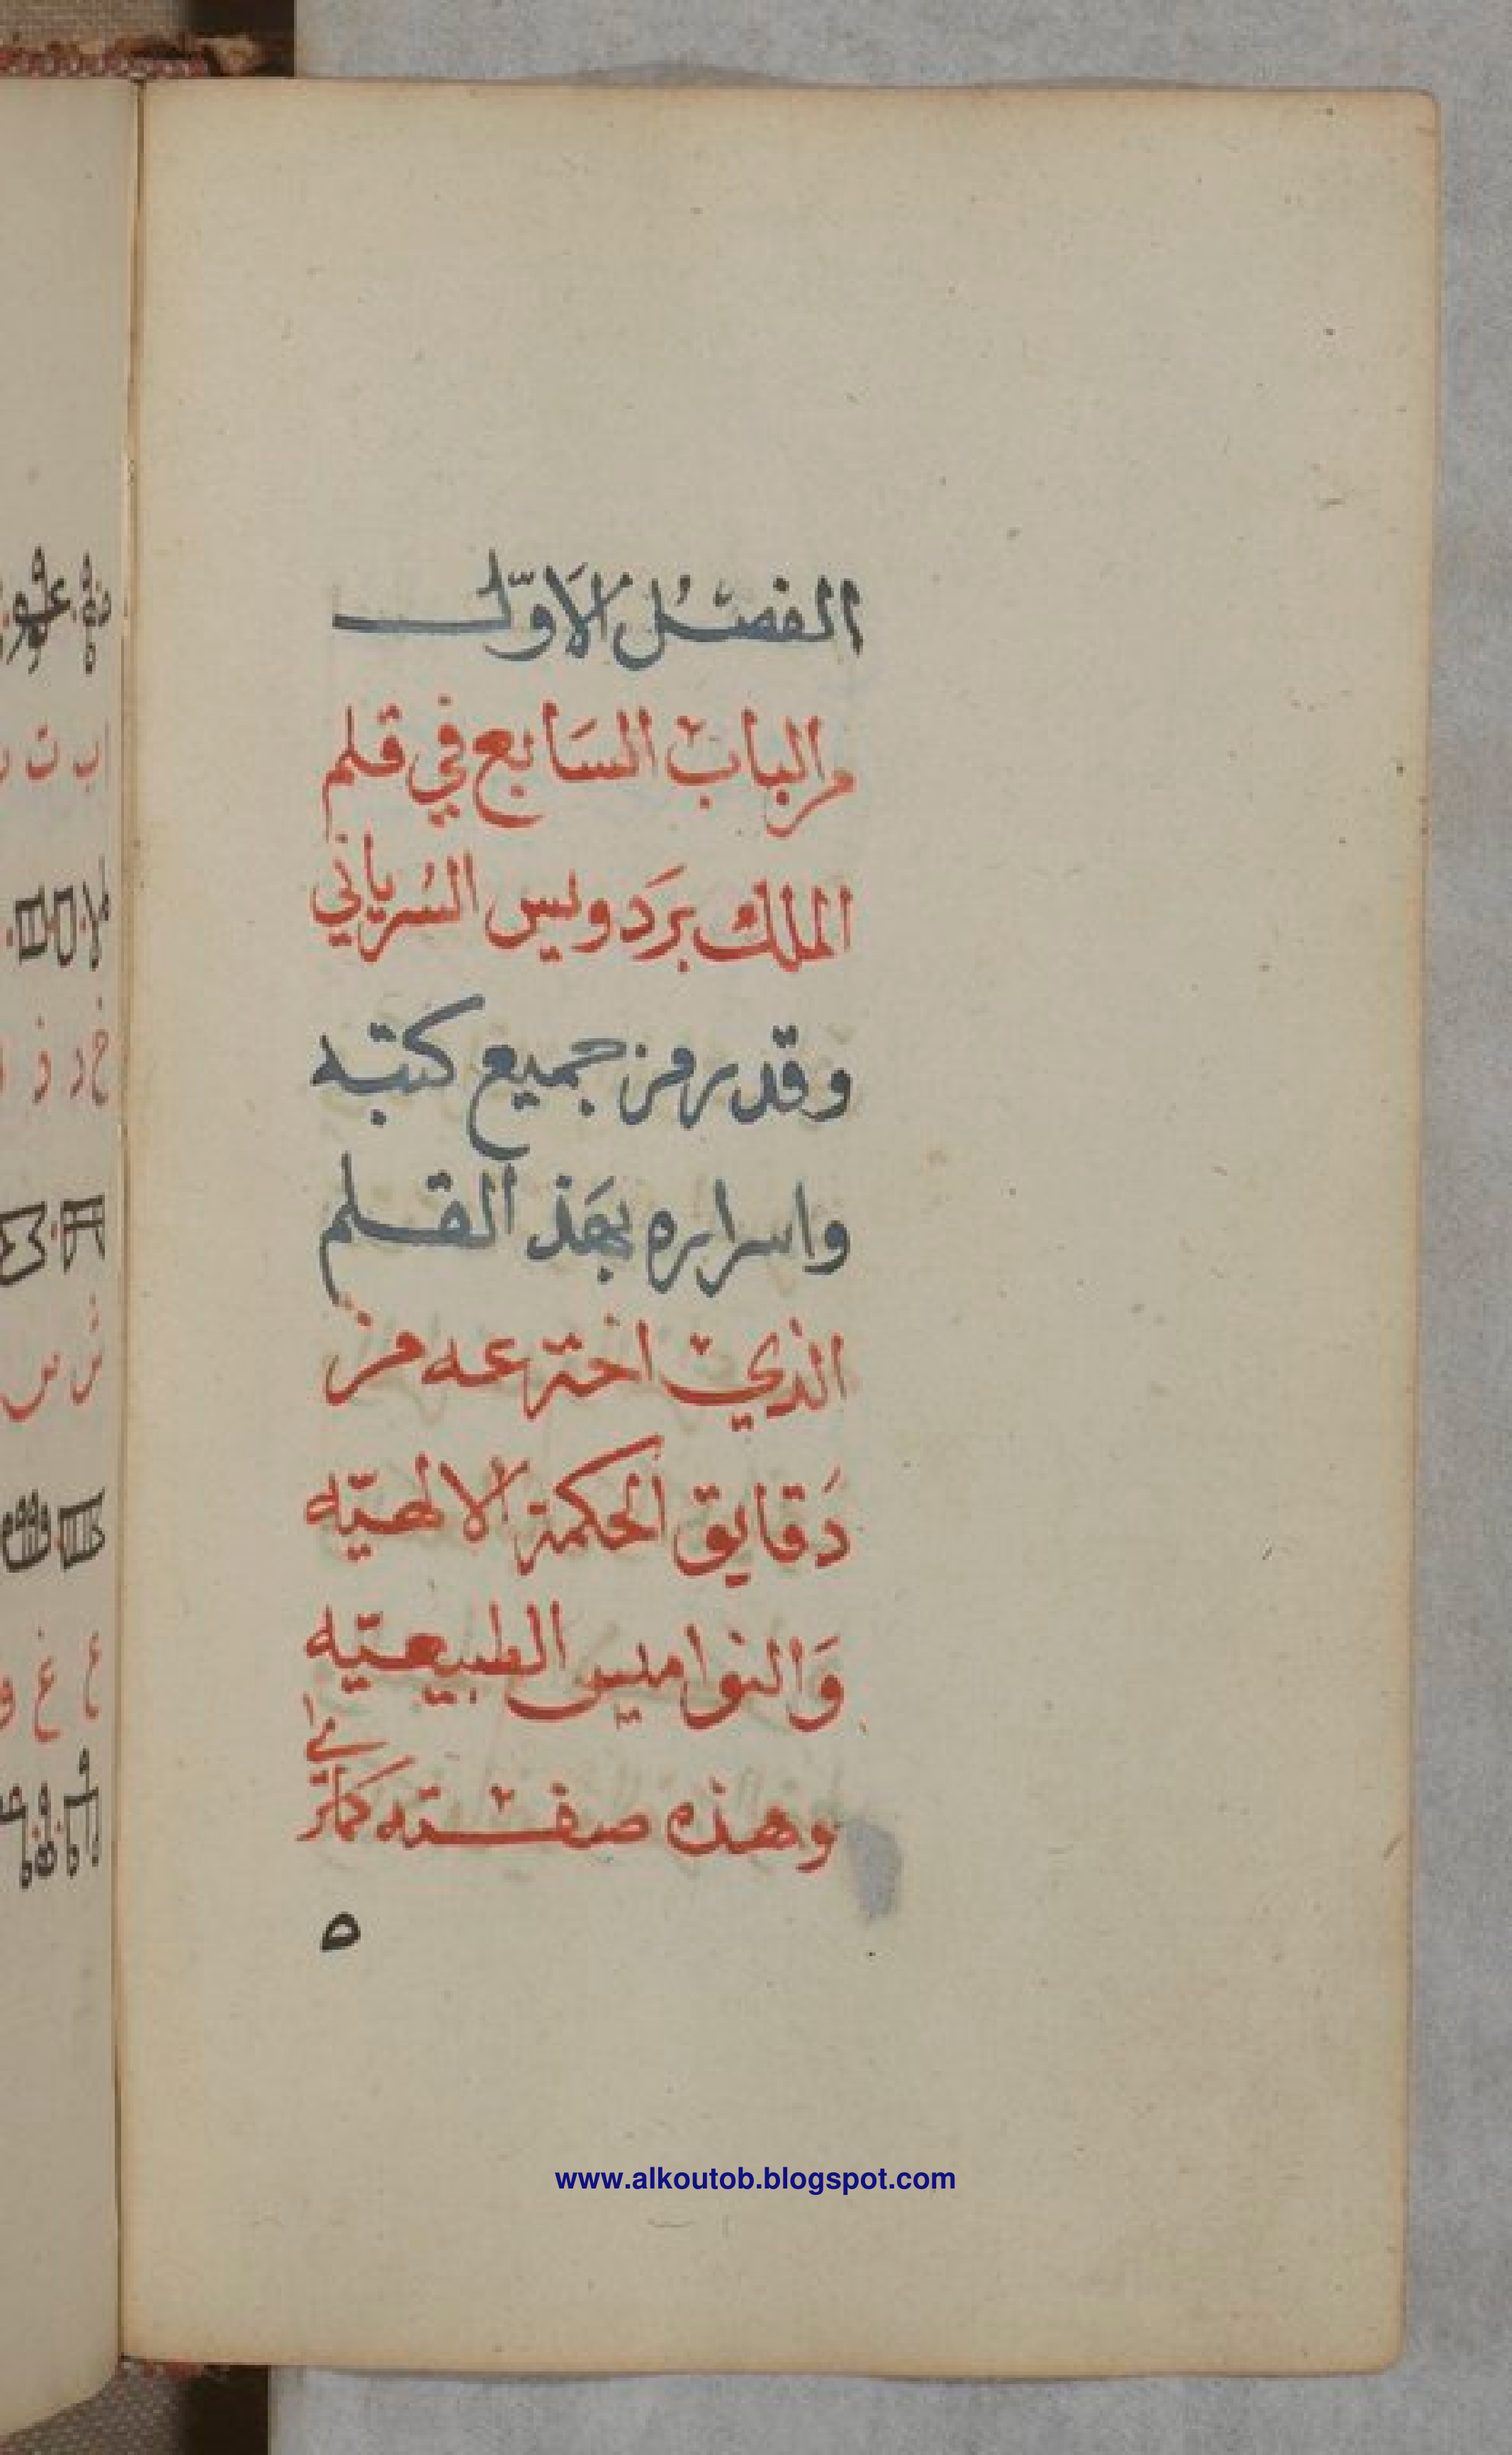 الفصْل الاَوّل
من الباب السَابع في قلم
الملك بَردويس السُرياني
وقد رمز جميع كتبه
واسراره بهَذ القلم
الذي اخترعه من
دَقايق الحكمة الالهيّه
وَالنواميس الطبيعيّه
وهذه صفته كما ترى
ه
www.alkoutob.blogspot.com
اب ت
خ د ذ
ش س
ع غ